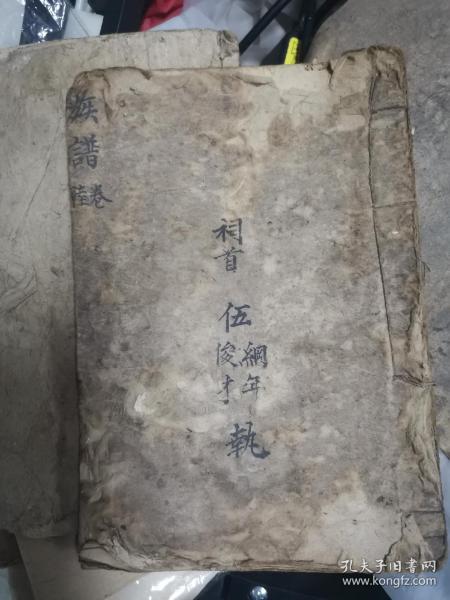 族譜
卷陸
祠首
伍
綱年
俊才
執
孔夫子旧书网
www.kongfz.com